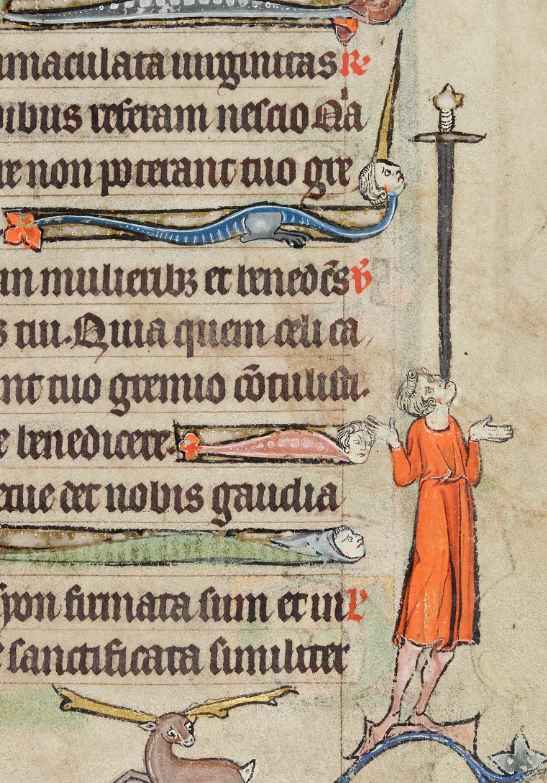 maculata uirginitas R
ibus referam nescio Qa
re non poterant tuo gre
in mulieribz et benedc̄s v̄
s tui. Quia quem celi ca
nt tuo gremio cōtulisti.
e benedicere.
et det nobis gaudia
syon firmata sum et in R
sanctificata similiter